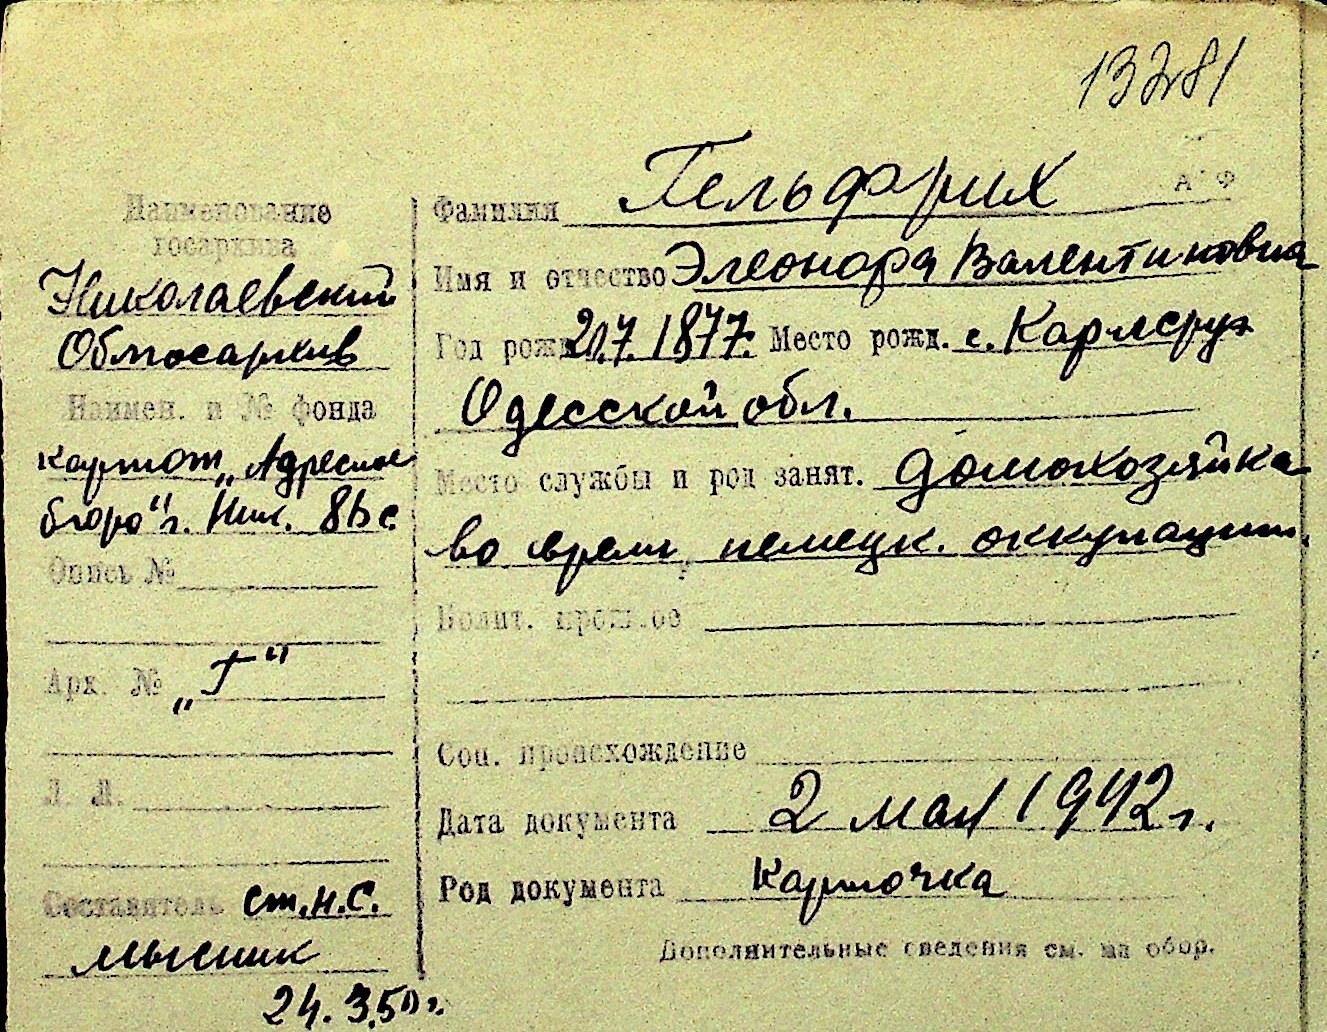 13281
Наименование
госархива
Николаевский
Облгосархив
Наимен. и № фонда
картот. „Адресное
бюро“ г. Ник.
Опись №
Арх. № „Г“
Л. Л.
Составитель ст. н. с.
24. 3. 50 г.
Фамилия Гельфрих
Имя и отчество Элеонора Валентиновна
Год рожд. 7. 1877. Место рожд. с. Карлсруэ
Одесской обл.
Место службы и род занят. домохозяйка
во время немецк. оккупации.
Полит. прошлое
Соц. происхождение
Дата документа 2 мая 1942 г.
Род документа карточка
Дополнительные сведения см. на обор.